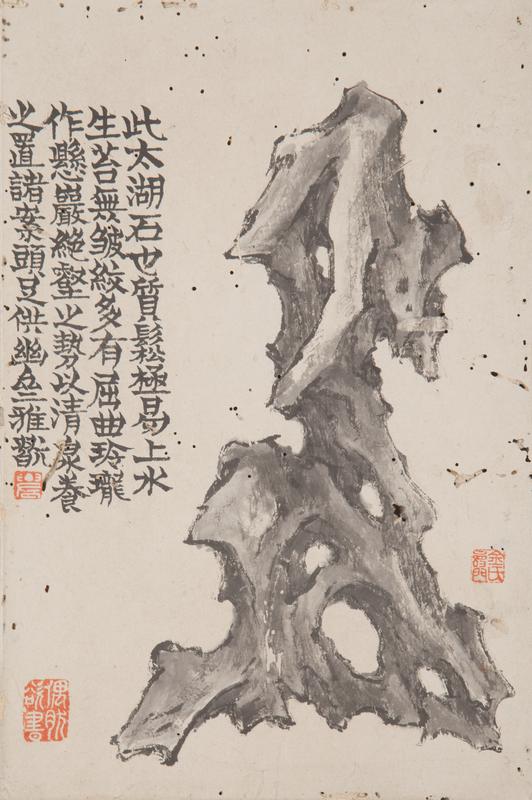 此太湖石也質鬆極易上水
生苔無皴紋多有屈曲玲瓏
作懸巖絕壑之勢以清泉養
之置諸案頭足供幽人雅翫
金氏